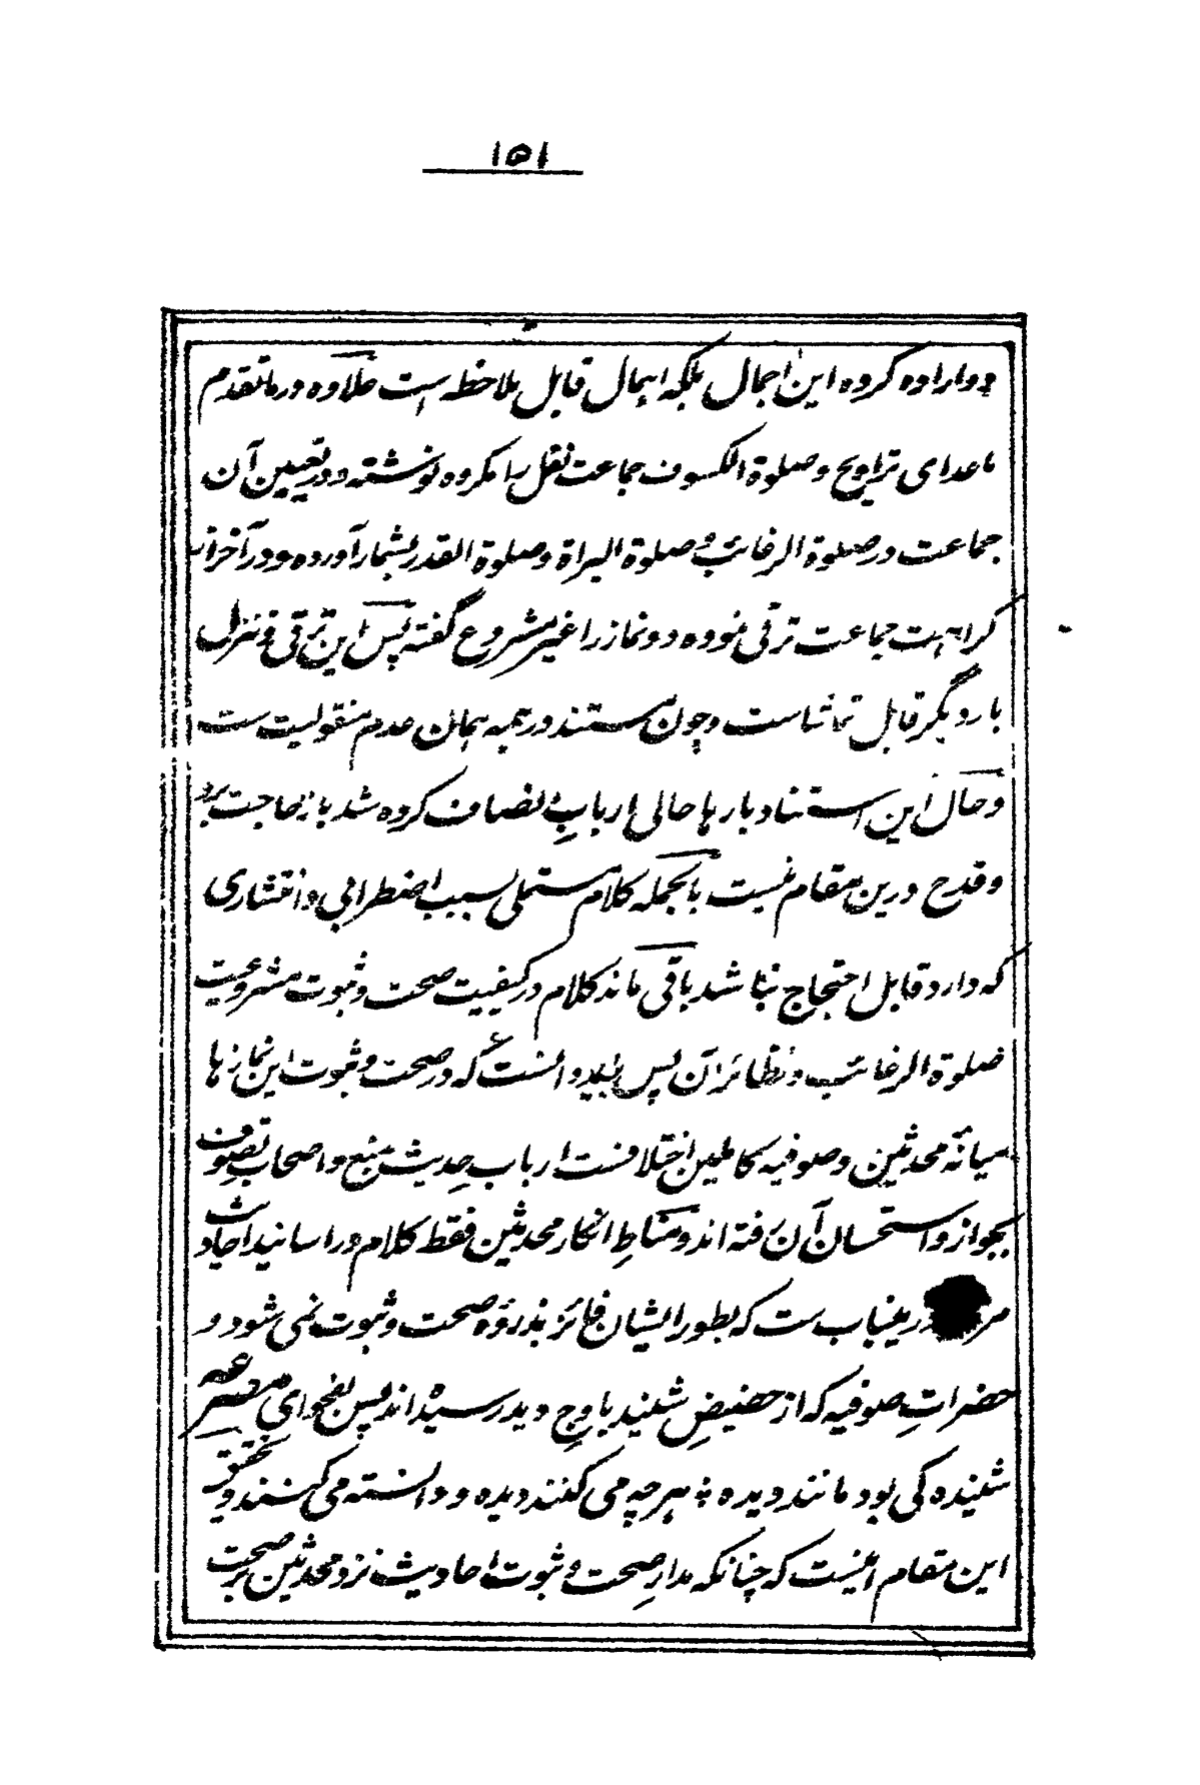 ١٥١
دوار اوه کرده این اجمال بلکه اہمال قابل ملاحظه است علاوه در ما تقدم
ماعدای تراویح و صلوة الکسوف جماعت نفل را مکروه نوشته و در تعیین آن
جماعت در صلوة الرغائب و صلوة البراة و صلوة القدر بشمار آورده و در آخر از
کراہت جماعت ترقی نموده و نماز را غیر مشروع گفته پس این ترقی و تنزل
بار دیگر قابل تماشاست و چون مستند در ہمه ہمان عدم منقولیت ست
و حال این استناد بارہا حالی ارباب انصاف کرده شد باز حاجت برد
و قدح درین مقام نیست بالجمله کلام مستملی بسبب اضطرابی و انتشاری
که دارد قابل احتجاج نباشد باقی ماند کلام در کیفیت صحت و ثبوت مشروعیت
صلوة الرغائب و نظائر آن پس باید دانست که در صحت و ثبوت این نمازہا
میانه محدثین و صوفیه کاملین اختلافست ارباب حدیث بمنع و اصحاب تصوف
بجواز و استحسان آن رفته اند و مناط انکار محدثین فقط کلام در اسانید احادیث
درینباب ست که بطور ایشان فائز بذروه صحت و ثبوت نمی شود و
حضرات صوفیه که از حضیض شنید باوج دید رسیده اند پس بفحوای مصرعه
شنیده کی بود مانند دیده ہرچه می کنند دیده و دانسته می کنند و تحقیق
این مقام اینست که چنانکه مدار صحت و ثبوت احادیث نزد محدثین بر صحت